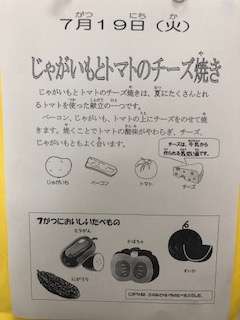 7月19日（火）
じゃがいもとトマトのチーズ焼き
じゃがいもとトマトのチーズ焼きは、夏にたくさんとれ
るトマトを使った献立の一つです。
ベーコン、じゃがいも、トマトの上にチーズをのせて焼
きます。焼くことでトマトの酸味がやわらぎ、チーズ、
じゃがいもともよく合います。
チーズは、牛乳から
作られる乳製品です。
じゃがいも
ベーコン
トマト
チーズ
7がつにおいしいたべもの
とうがん
かぼちゃ
すいか
にがうり